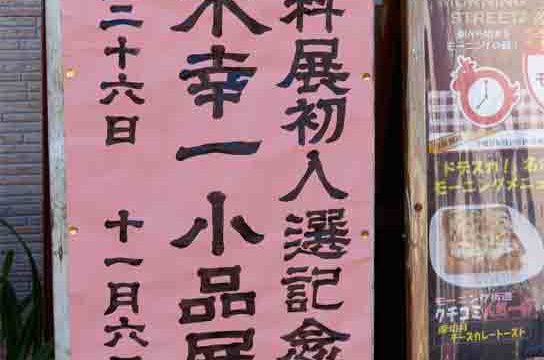 科展初入選記念
木幸一小品展
二十六日 十一月六日
MORNING
STREET
モーニングの館!
ドデスカ!
モーニングメニュー
モーニング街道
クチコミ
チーズカレートースト